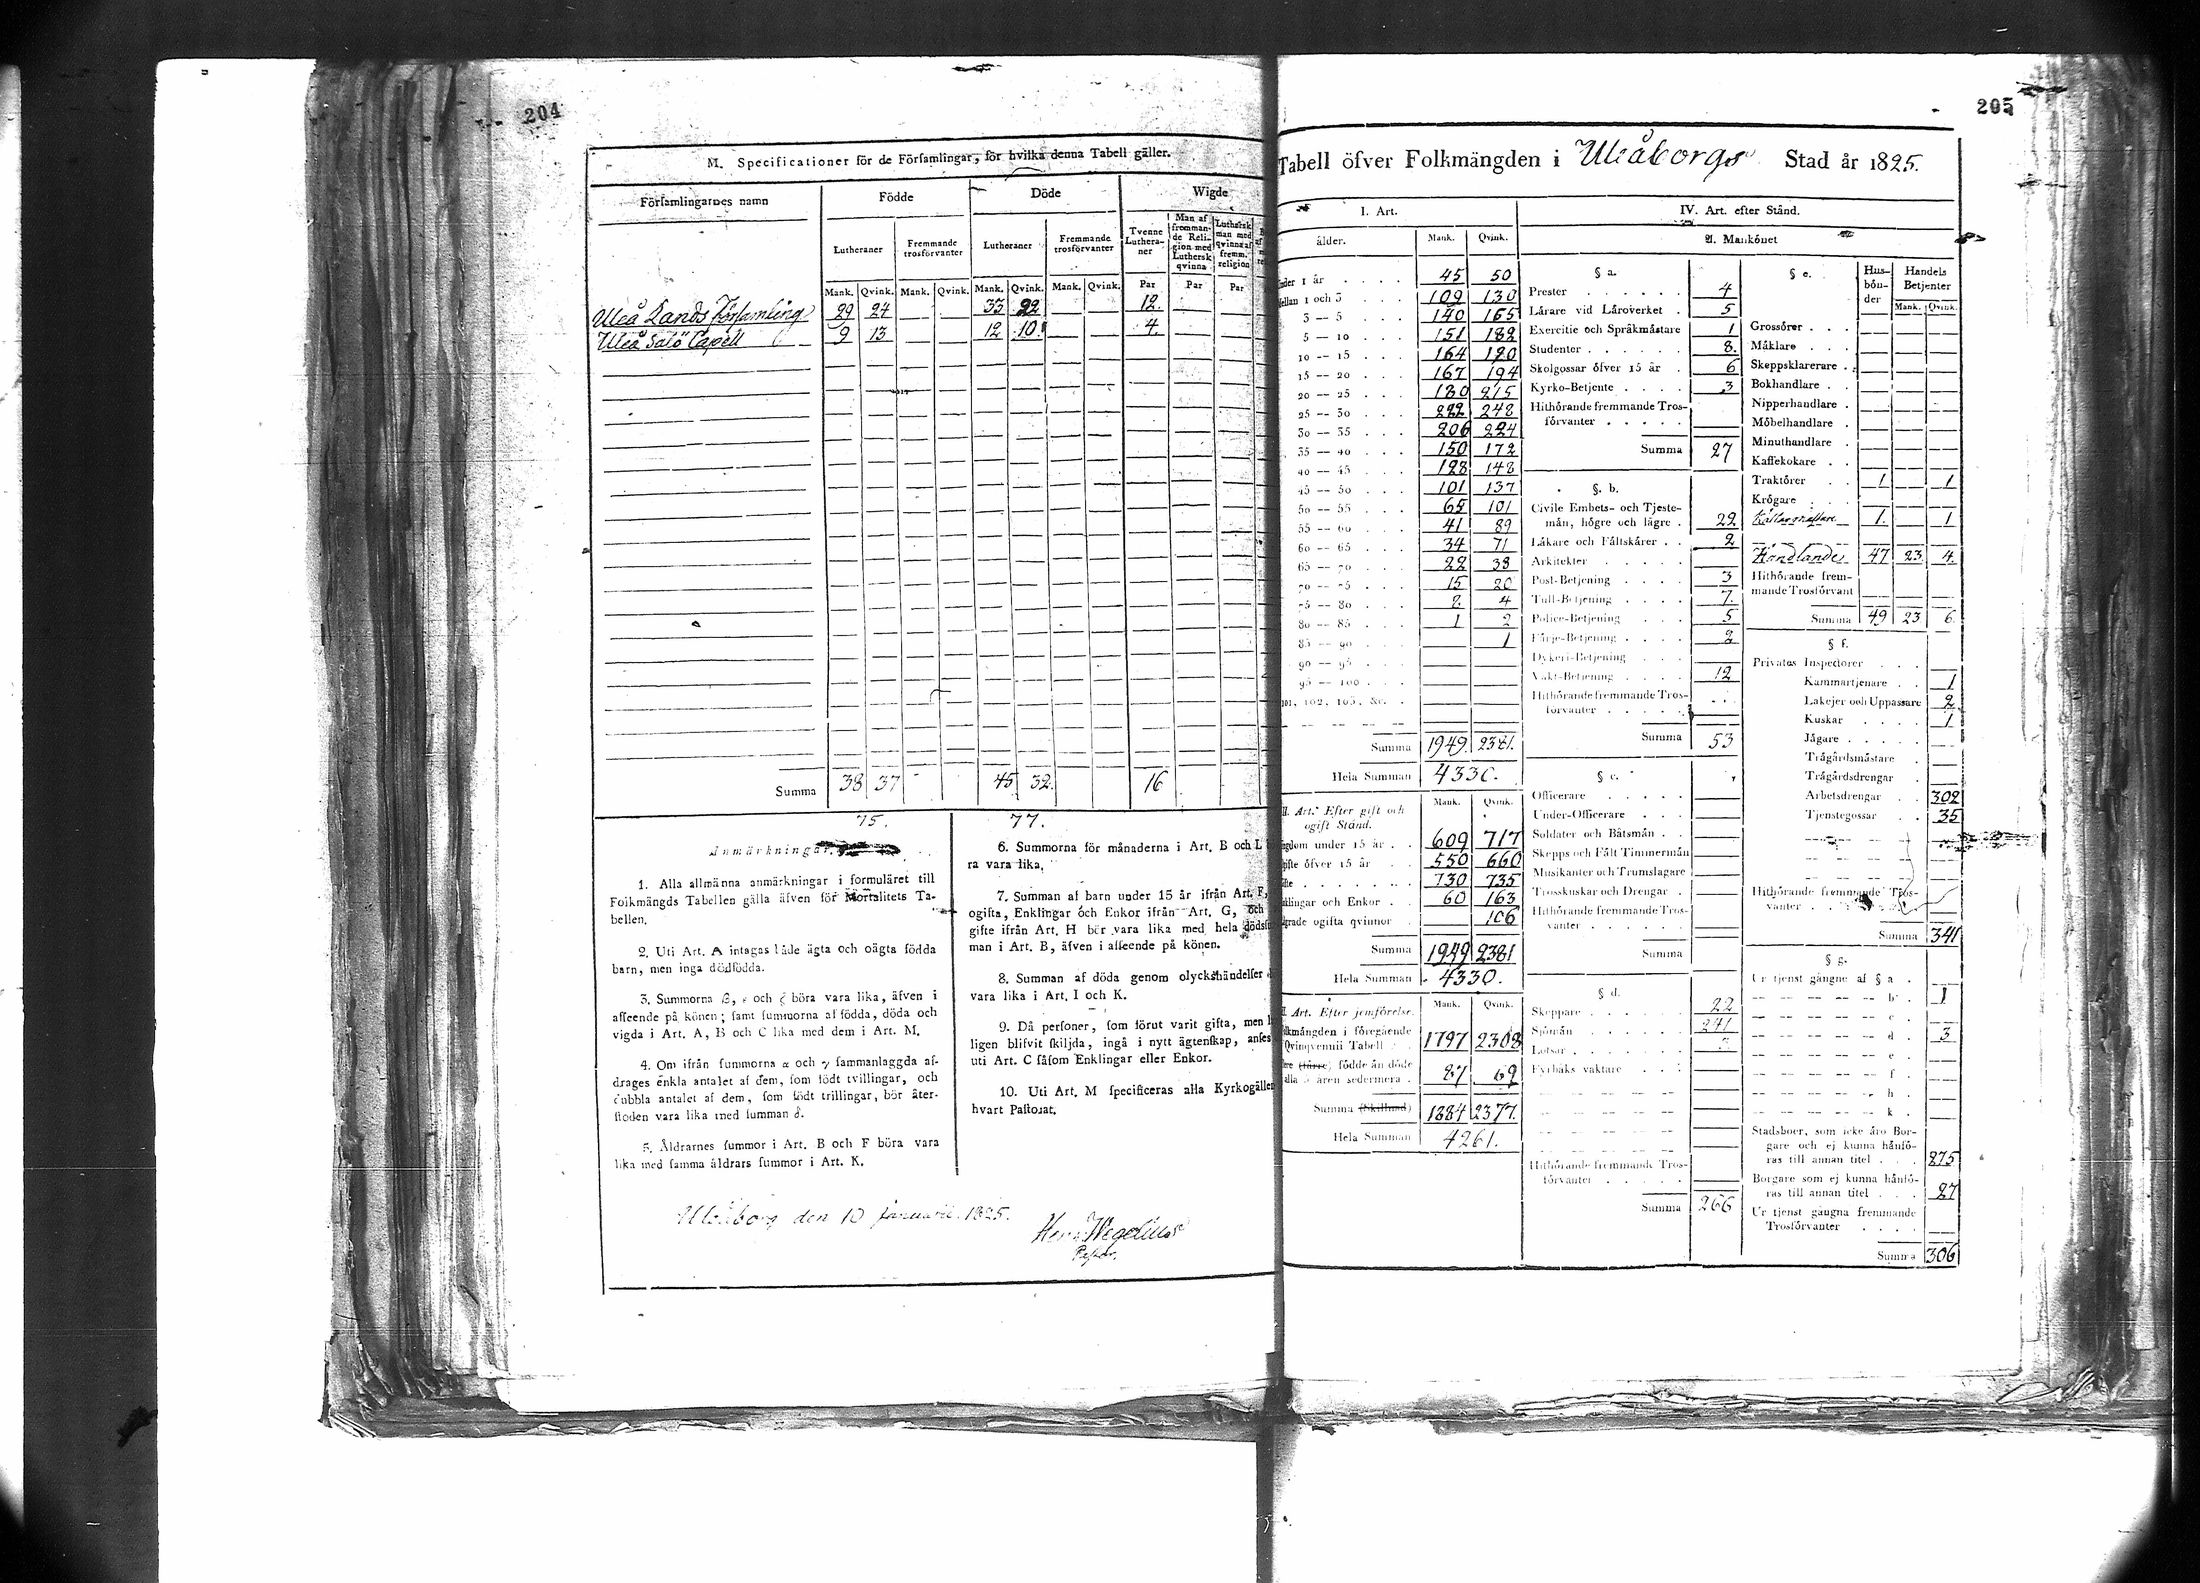 204
M. Specificationer för de Församlingar, för hvilka denna Tabell gäller.
Församlingarnes namn
Födde
Döde
Wigde
Lutheraner
Fremmande trosförvanter
Lutheraner
Fremmande trosförvanter
Tvenne Lutheraner
Man af fremmande Religion med Luthersk qvinna
Luthersk man med qvinna af fremm. religion
Mank. Qvink. Mank. Qvink. Mank. Qvink. Mank. Qvink. Par Par Par
Uleå Lands Församling 29 24 33 22 12.
Uleå Salo Capell 9 13 12 10 4.
Summa 38 37 45 32 16
75. 77.
Anmärkningar.
1. Alla allmänna anmärkningar i formuläret till
Folkmängds Tabellen gälla äfven för Mortalitets Ta-
bellen.
2. Uti Art. A intagas både ägta och oägta födda
barn, men inga dödfödda.
3. Summorna β, ε och ζ böra vara lika, äfven i
afseende på könen; samt summorna af födda, döda och
vigda i Art. A, B och C lika med dem i Art. M.
4. Om ifrån summorna α och γ sammanlaggda af-
drages enkla antalet af dem, som födt tvillingar, och
dubbla antalet af dem, som födt trillingar, bör åter-
stoden vara lika med summan δ.
5. Åldrarnes summor i Art. B och F böra vara
lika med samma åldrars summor i Art. K.
6. Summorna för månaderna i Art. B och L
ra vara lika.
7. Summan af barn under 15 år ifrån Art. F,
ogifta, Enklingar och Enkor ifrån Art. G, och
gifte ifrån Art. H bör vara lika med hela döds
man i Art. B, äfven i afseende på könen.
8. Summan af döda genom olyckshändelser
vara lika i Art. I och K.
9. Då personer, som förut varit gifta, men
ligen blifvit skiljda, ingå i nytt ägtenskap, anses
uti Art. C såsom Enklingar eller Enkor.
10. Uti Art. M specificeras alla Kyrkogälle
hvart Pastorat.
Uleåborg den 10 januarii 1825.
Wegelius
Pastor.
205
Tabell öfver Folkmängden i Uleåborgs Stad år 1825.
I. Art.
ålder. Mank. Qvink.
under 1 år 45 50
mellan 1 och 3 109 130
3 — 5 140 165
5 — 10 151 182
10 — 15 164 190
15 — 20 167 194
20 — 25 180 215
25 — 30 222 248
30 — 35 206 224
35 — 40 150 172
40 — 45 128 148
45 — 50 101 137
50 — 55 65 101
55 — 60 41 89
60 — 65 34 71
65 — 70 22 38
70 — 75 15 20
75 — 80 8 4
80 — 85 1 2
85 — 90 1
90 — 95
95 — 100
101, 102, 103, &c.
Summa 1949. 2381.
Hela Summan 4330.
II. Art. Efter gift och
ogift Stånd. Mank. Qvink.
ngdom under 15 år 609 717
gifte öfver 15 år 550 660
ifte 730 735
nklingar och Enkor 60 163
grade ogifta qvinnor 106
Summa 1949 2381
Hela Summan 4330.
Art. Efter jemförelse. Mank. Qvink.
lkmängden i föregående
Qvinqvennii Tabell 1797 2308
lere (färre) födde än döde
alla 5 åren sedermera 87 69
Summa (Skillnad) 1884 2377.
Hela Summan 4261.
IV. Art. efter Stånd.
A. Mankönet
§ a.
Prester 4
Lärare vid Läroverket 5
Exercitie och Språkmästare 1
Studenter 8.
Skolgossar öfver 15 år 6
Kyrko-Betjente 3
Hithörande fremmande Tros-
förvanter
Summa 27
§. b.
Civile Embets- och Tjeste-
män, högre och lägre 22
Läkare och Fältskärer 2
Arkitekter
Post-Betjening 3
Tull-Betjening 7.
Police-Betjening 5
Färje-Betjening 2
Dykeri-Betjening
Vakt-Betjening 12
Hithörande fremmande Tros-
förvanter
Summa 53
§ c.
Officerare
Under-Officerare
Soldater och Båtsmän
Skepps och Fält Timmermän
Musikanter och Trumslagare
Trosskuskar och Drengar
Hithörande fremmande Tros-
vanter
Summa
§ d.
Skeppare 22
Sjömän 241
Lotsar 3
Fyrbåks vaktare
Hithörande fremmande Tros-
förvanter
Summa 266
§ e.
Husbönder
Handels Betjenter
Mank. Qvink.
Grossörer
Mäklare
Skeppsklarerare
Bokhandlare
Nipperhandlare
Möbelhandlare
Minuthandlare
Kaffekokare
Traktörer 1 1
Krögare
Källarmästare 1. 1
Handlande 47 23 4.
Hithörande frem-
mande Trosförvant
Summa 49 23 6.
§ f.
Privates Inspectorer
Kammartjenare 1
Lakejer och Uppassare 2
Kuskar 1
Jägare
Trägårdsmästare
Trägårdsdrengar
Arbetsdrengar 302
Tjenstegossar 35
Hithörande fremmande Tros-
vanter
Summa 341
§ g.
Ur tjenst gångne af § a
b 1
c
d 3
e
f
h
k
Stadsboer, som icke äro Bor-
gare och ej kunna hänfö-
ras till annan titel 275
Borgare som ej kunna hänfö-
ras till annan titel 27
Ur tjenst gångna fremmande
Trosförvanter
Summa 306